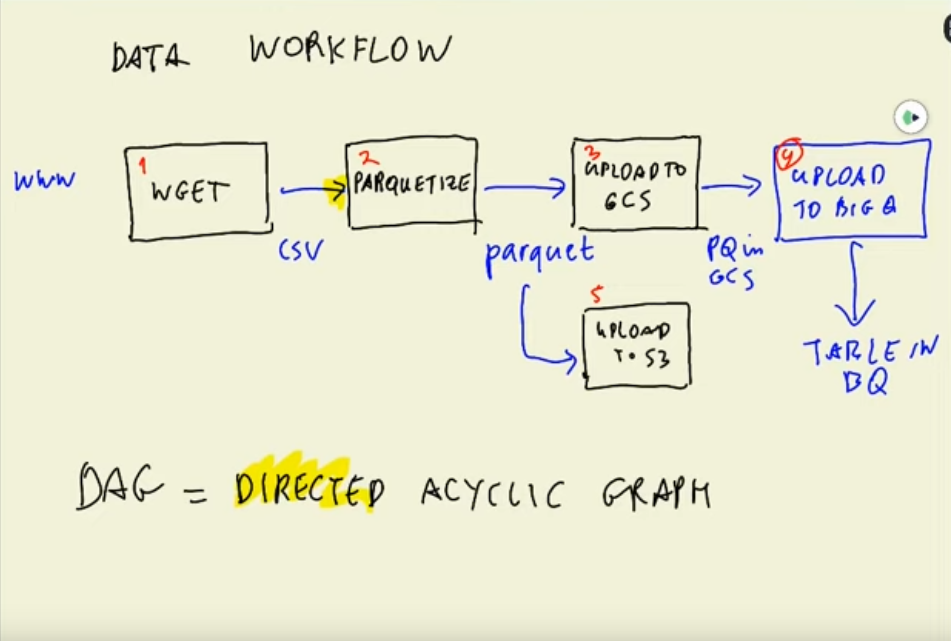 DATA WORKFLOW
www
1
WGET
CSV
2
PARQUETIZE
parquet
3
UPLOAD TO
GCS
PQ in
GCS
4
UPLOAD
TO BIG Q
5
UPLOAD
TO S3
TABLE IN
BQ
DAG = DIRECTED ACYCLIC GRAPH